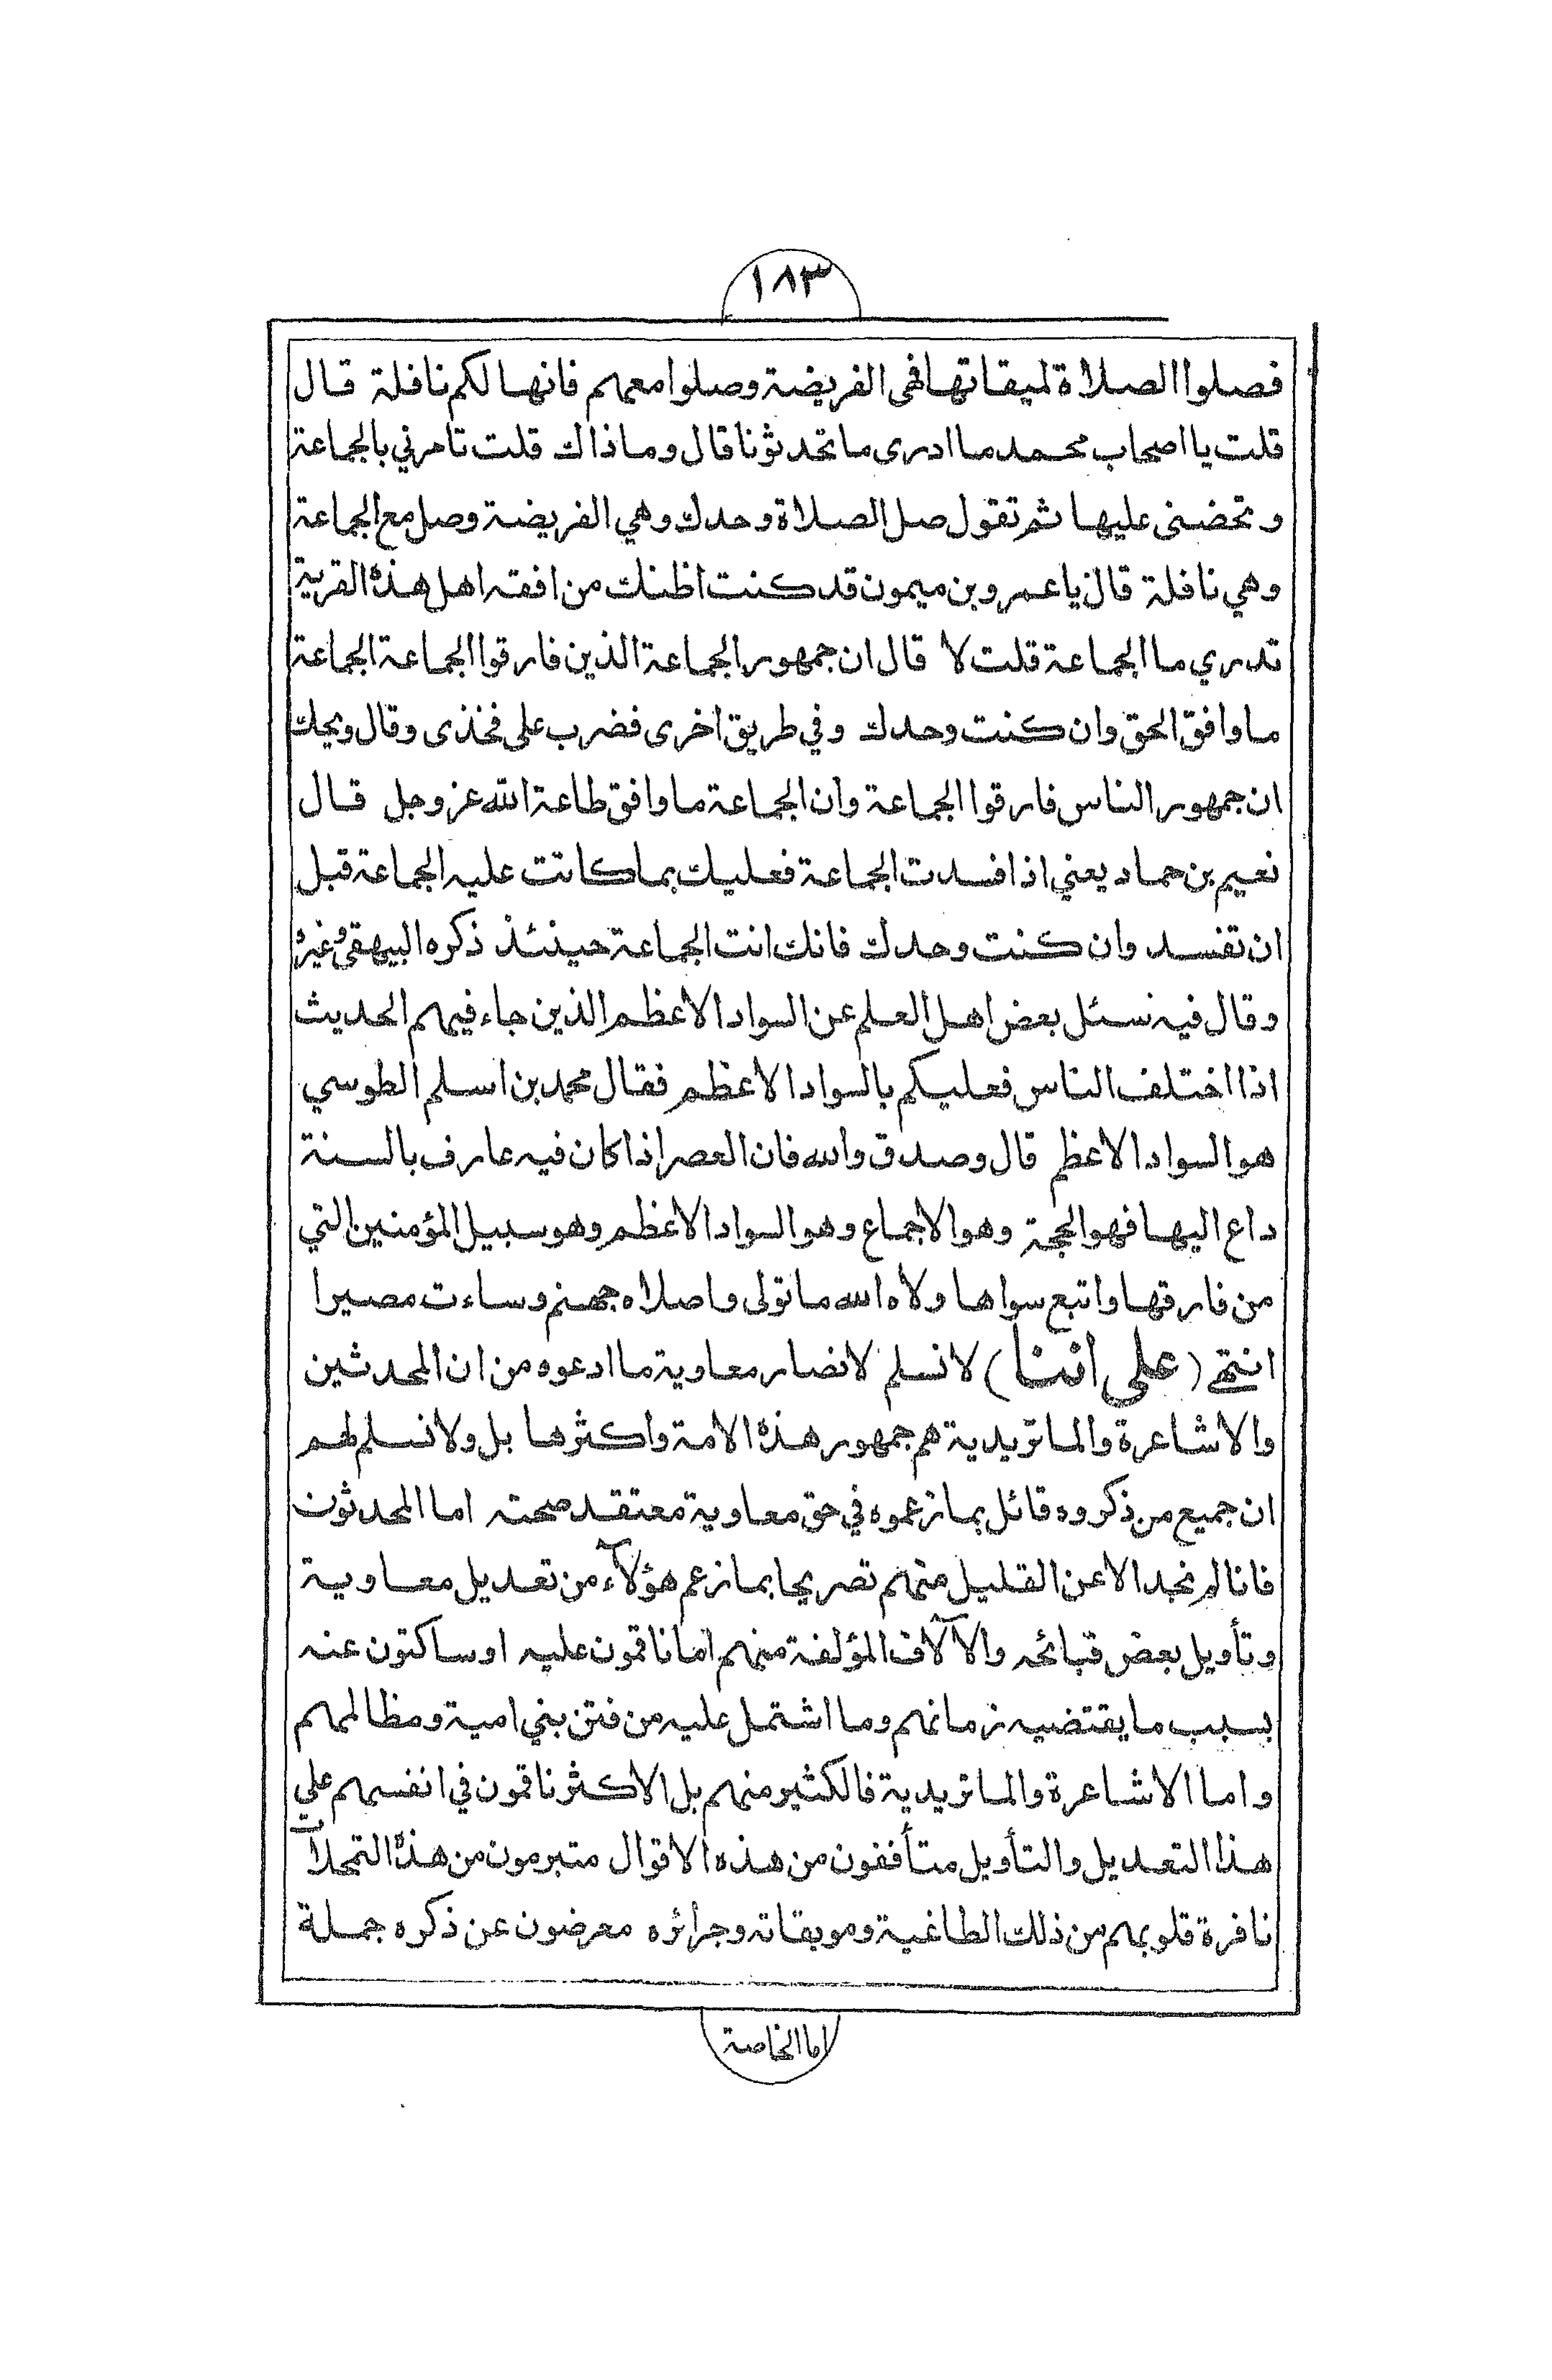 ١٨٣
فصلوا الصلاة لميقاتها فهى الفريضة وصلوا معهم فانها لكم نافلة قال
قلت يا اصحاب محمد ما ادرى ما تحدثونا قال وما ذاك قلت تامرني بالجماعة
وتحضنى عليها ثم تقول صل الصلاة وحدك وهي الفريضة وصل مع الجماعة
وهي نافلة قال يا عمرو بن ميمون قد كنت اظنك من افقه اهل هذه القرية
تدري ما الجماعة قلت لا قال ان جمهور الجماعة الذين فارقوا الجماعة الجماعة
ما وافق الحق وان كنت وحدك وفي طريق اخرى فضرب على فخذى وقال ويحك
ان جمهور الناس فارقوا الجماعة وان الجماعة ما وافق طاعة الله عز وجل قال
نعيم بن حماد يعني اذا فسدت الجماعة فعليك بما كانت عليه الجماعة قبل
ان تفسد وان كنت وحدك فانك انت الجماعة حينئذ ذكره البيهقى وغيره
وقال فيه سئل بعض اهل العلم عن السواد الاعظم الذين جاء فيهم الحديث
اذا اختلف الناس فعليكم بالسواد الاعظم فقال محمد بن اسلم الطوسي
هو السواد الاعظم قال وصدق والله فان العصر اذا كان فيه عارف بالسنة
داع اليها فهو الحجة وهو الاجماع وهو السواد الاعظم وهو سبيل المؤمنين التي
من فارقها واتبع سواها ولاه الله ما تولى واصلاه جهنم وساءت مصيرا
انتهى (على اننا) لا نسلم لانصار معاوية ما ادعوه من ان المحدثين
والاشاعرة والماتريدية هم جمهور هذه الامة واكثرها بل ولا نسلم لهم
ان جميع من ذكروه قائل بما زعموه في حق معاوية معتقد صحته اما المحدثون
فانا لم نجد الا عن القليل منهم تصريحا بما زعم هؤلآء من تعديل معاوية
وتأويل بعض قبائحه والآلاف المؤلفة منهم اما ناقمون عليه او ساكتون عنه
بسبب ما يقتضيه زمانهم وما اشتمل عليه من فتن بني امية ومظالمهم
واما الاشاعرة والماتريدية فالكثير منهم بل الاكثر ناقمون في انفسهم على
هذا التعديل والتأويل متأففون من هذه الاقوال متبرمون من هذه التمحلات
نافرة قلوبهم من ذلك الطاغية وموبقاته وجرائره معرضون عن ذكره جملة
اما الخاصة